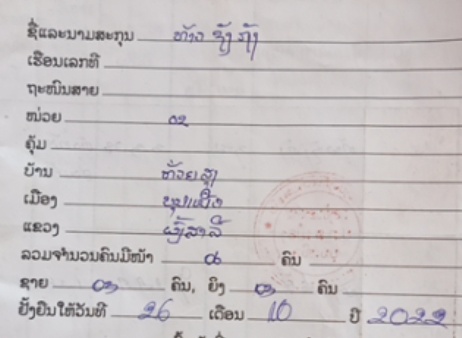 ຊື່ແລະນາມສະກຸນ ທ້າວ
ເຮືອນເລກທີ
ຖະໜົນສາຍ
ໜ່ວຍ 02
ຄຸ້ມ
ບ້ານ ຫ້ວຍ
ເມືອງ ບຸນເໜືອ
ແຂວງ ຜົ້ງສາລີ
ລວມຈຳນວນຄົນມີໜ້າ 06 ຄົນ
ຊາຍ 03 ຄົນ, ຍິງ 03 ຄົນ
ຢັ້ງຢືນໃຫ້ວັນທີ 26 ເດືອນ 10 ປີ 2022